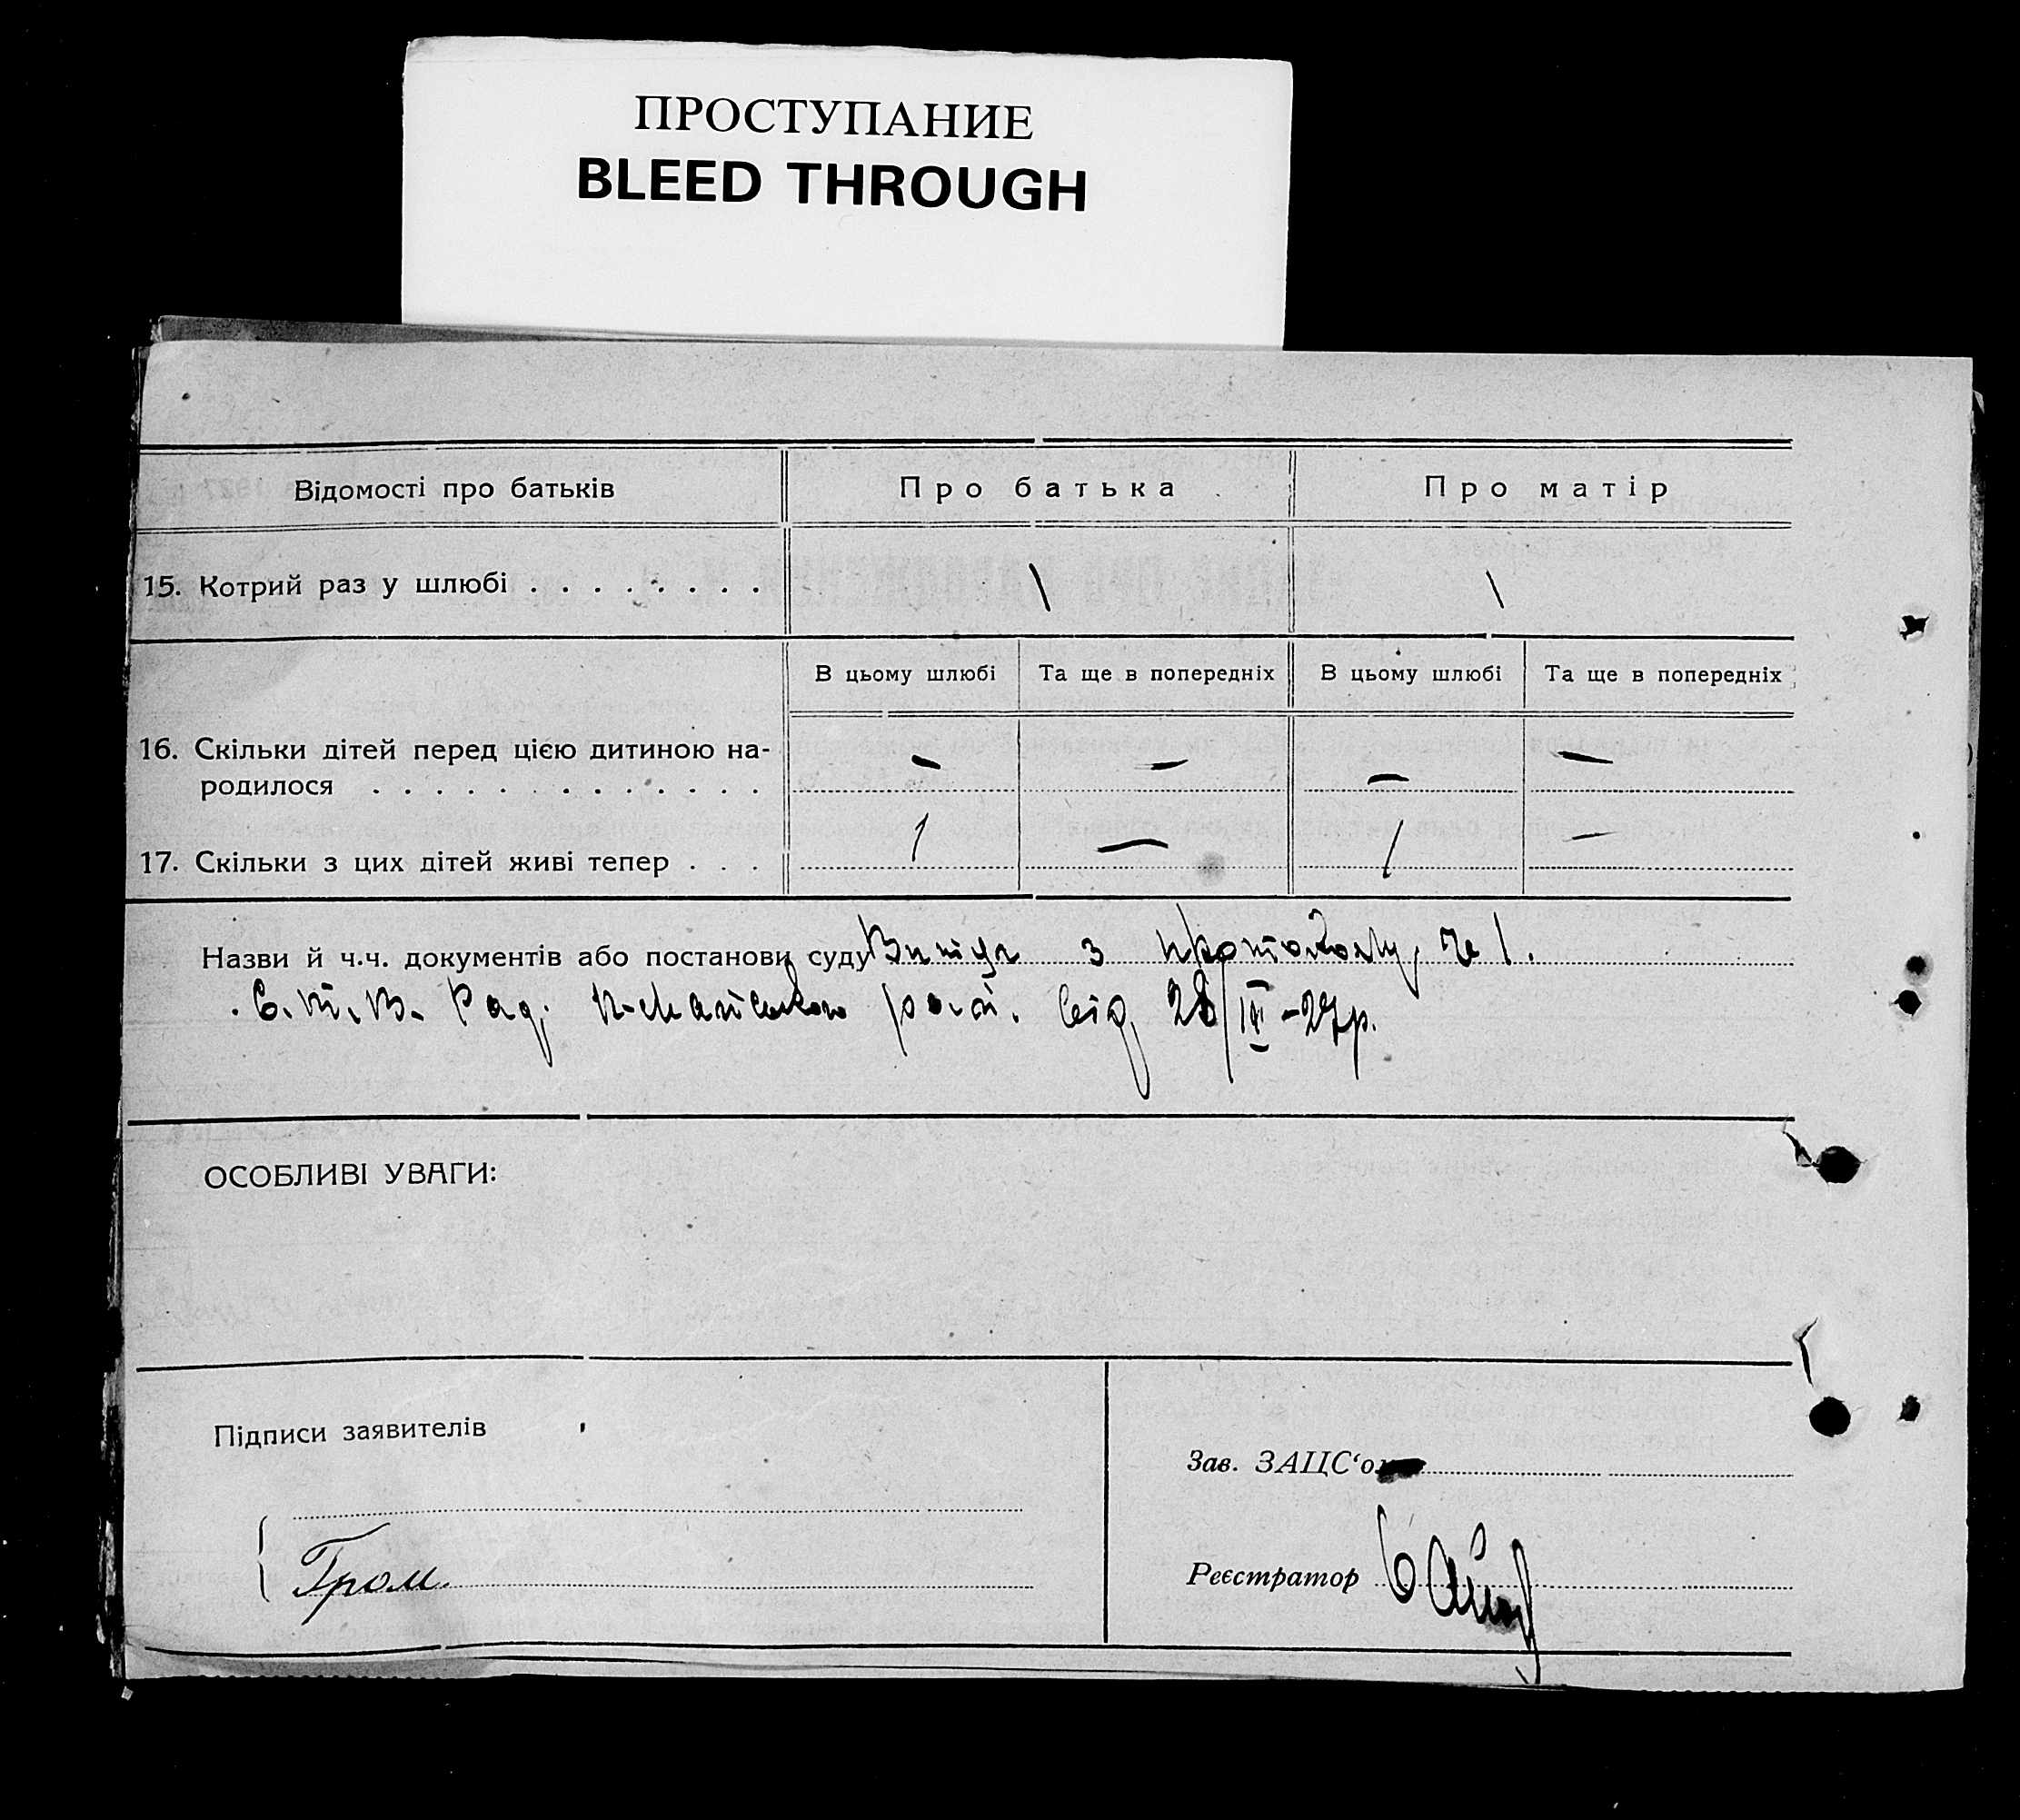 ПРОСТУПАНИЕ
BLEED THROUGH
Відомості про батьків Про батька Про матір
15. Котрий раз у шлюбі . . . . . . . . \ \
В цьому шлюбі Та ще в попередніх В цьому шлюбі Та ще в попередніх
16. Скільки дітей перед цією дитиною на-
родилося . . . . . . . . . . . . . — — — —
17. Скільки з цих дітей живі тепер . . . 1 — 1 —
Назви й ч.ч. документів або постанови суду Витяг з протоколу ч 1.
Рад. від 28/IV-27р.
ОСОБЛИВІ УВАГИ:
Підписи заявителів
Зав. ЗАЦС‘ом
Гром.
Реєстратор